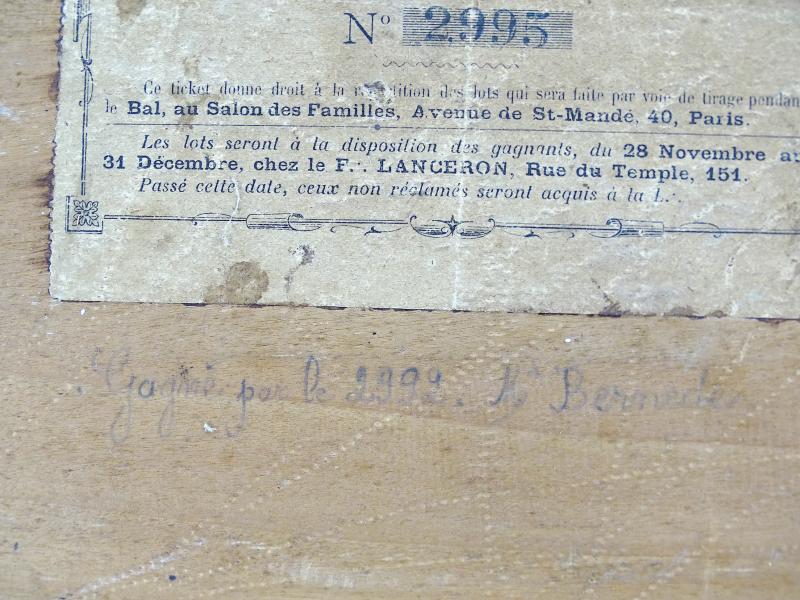 N° 2995
Ce ticket donne droit à la répétition des lots qui sera faite par voie de tirage pendan
le Bal, au Salon des Familles, Avenue de St-Mandé, 40, Paris.
Les lots seront à la disposition des gagnants, du 28 Novembre au
31 Décembre, chez le F∴ LANCERON, Rue du Temple, 151.
Passé cette date, ceux non réclamés seront acquis à la L∴
Gagné par le 2992.